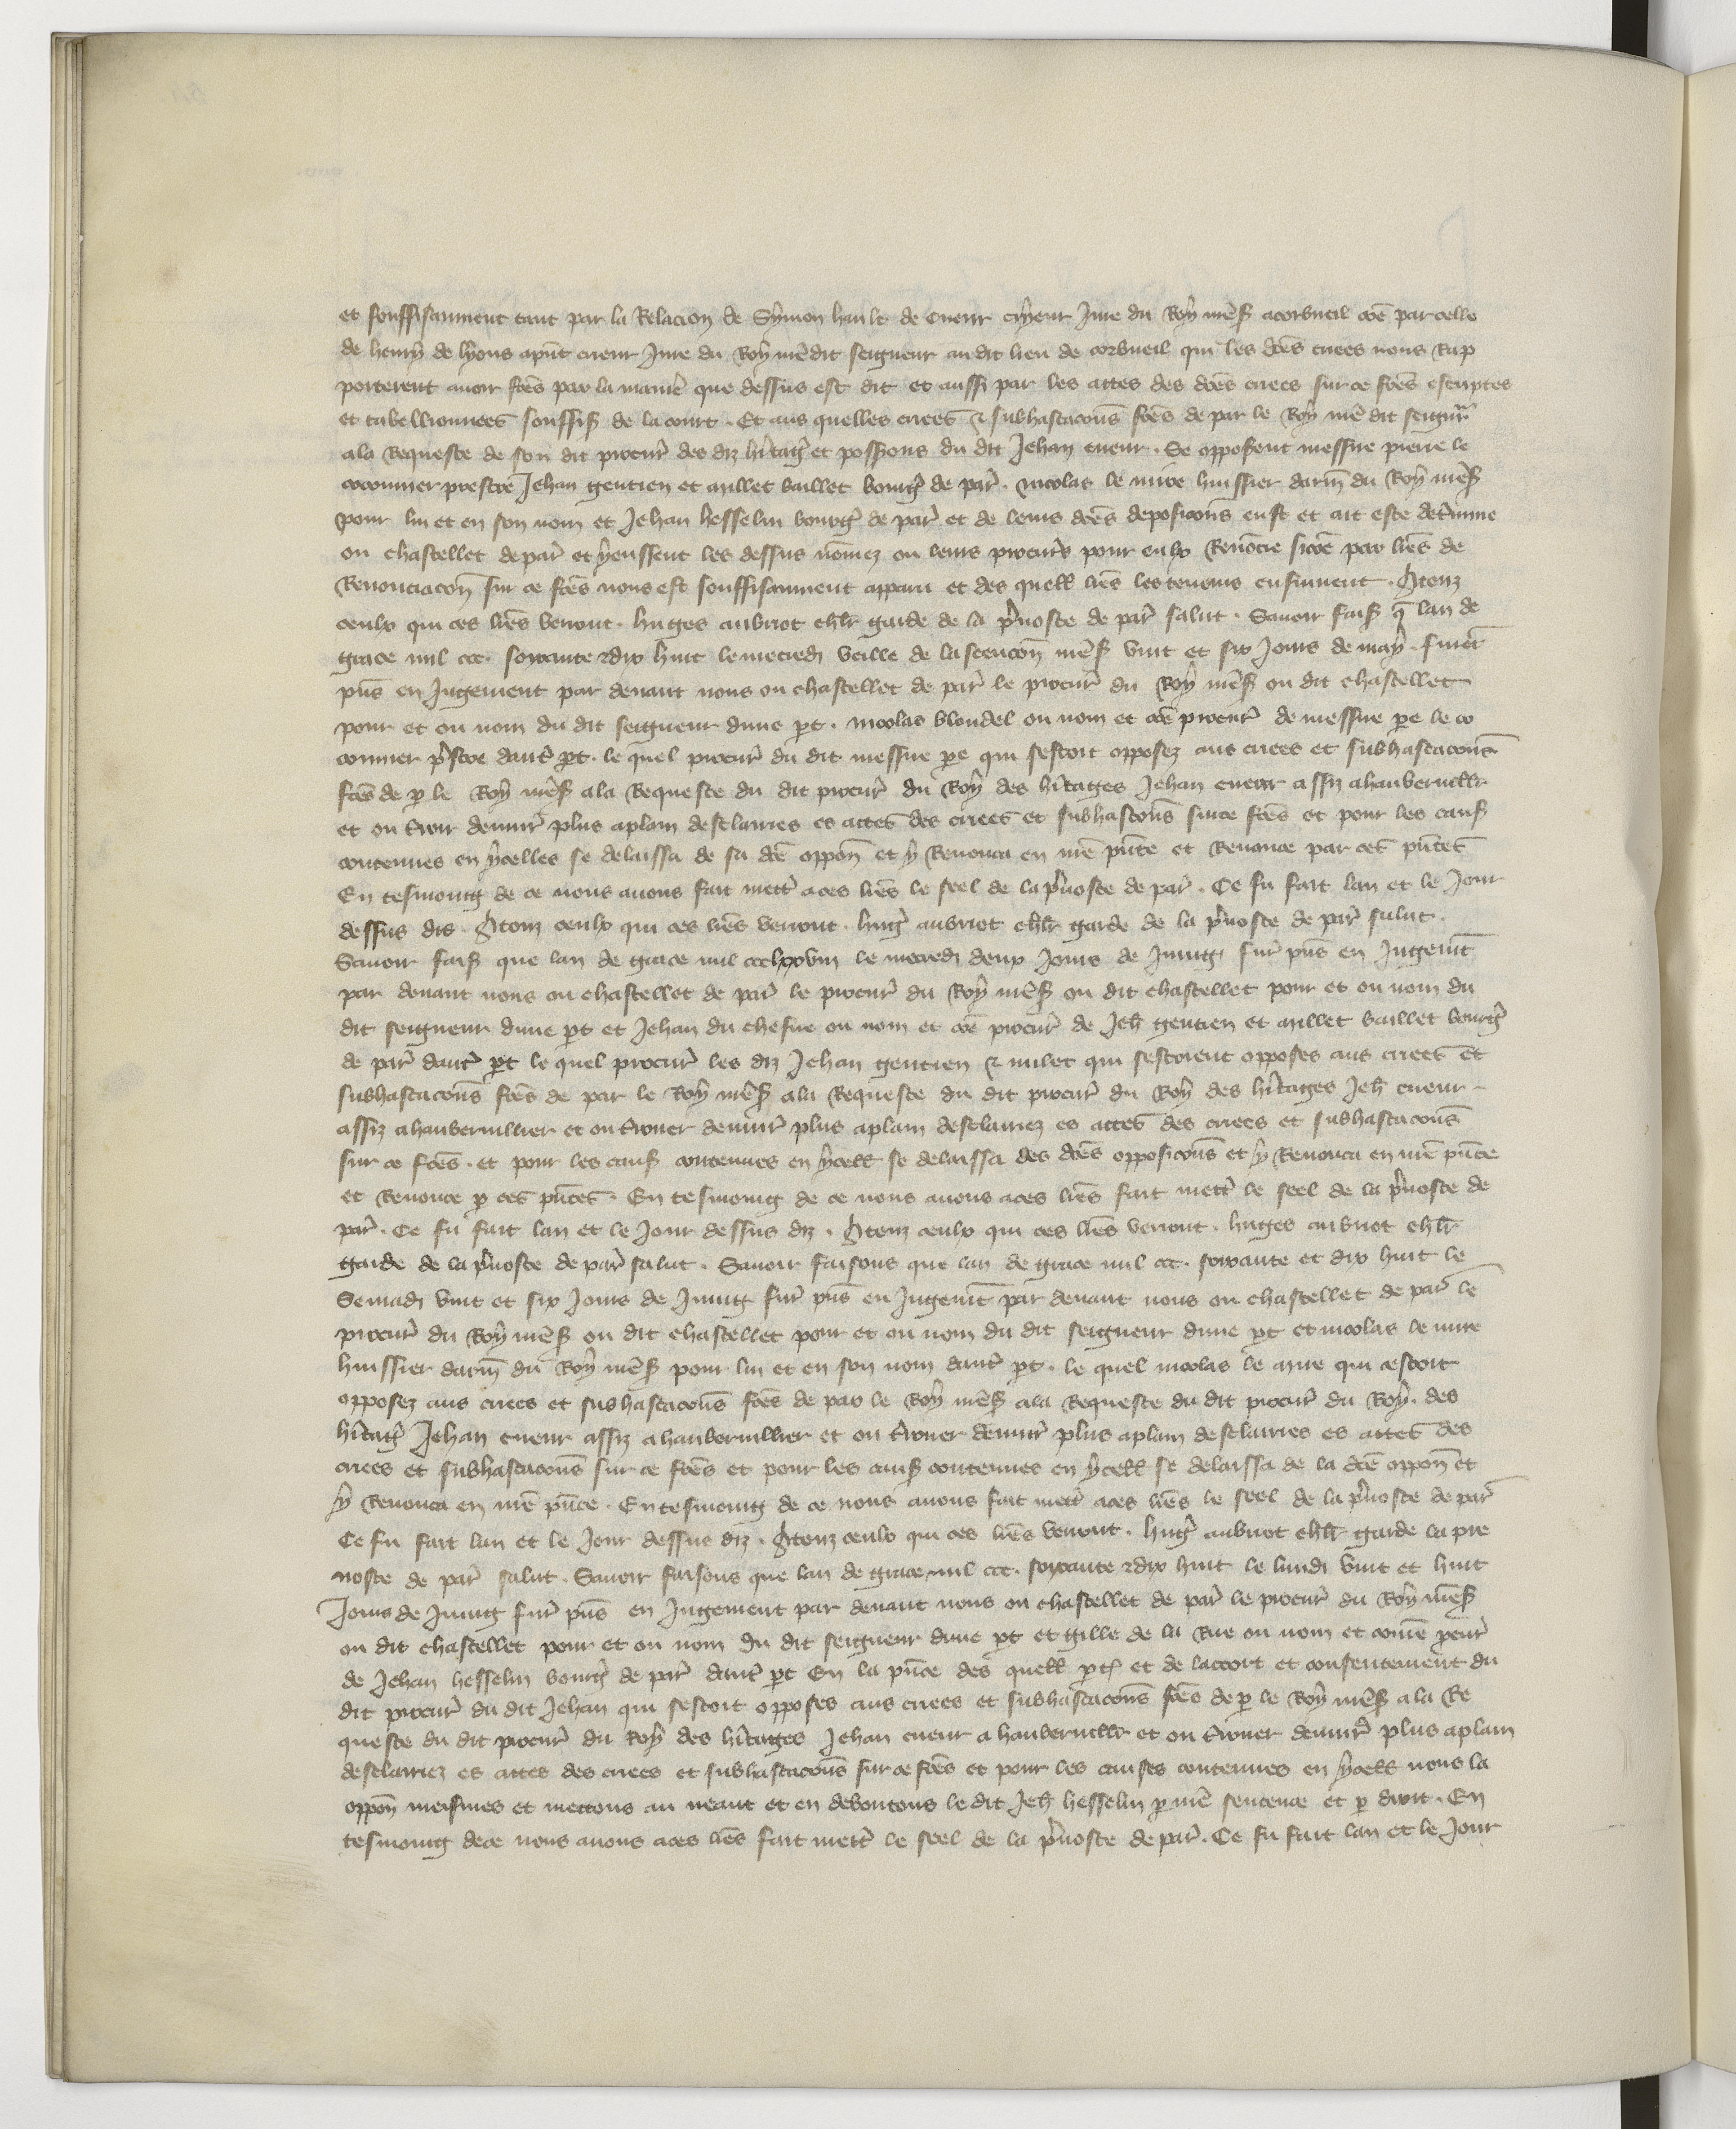 et souffisanment tant par la Relacion de Symon hault de cueur cryeur Jure du Roy nr̄eS acorbueil cōe par celle
de henry de lyons apn̄t crieur Jure du Roy nr̄e dit seigneur au dit lieu de corbueil qui les dc̄es criees nous Rap
porterent avoir fc̄es par la manie᷑ que dessus est dit et aussi par les actes des dc̄es criees sur ce fc̄es escriptes
et tabellionnees souffiS de la court . Et aus quelles criees ⁊ subhastacōns fc̄es de par le Roy nr̄e dit seigñr
ala Requeste de son dit procur᷑ des diz h̄itag᷑ et possessions du dit Jehan cueur . Se opposent messire pierre le
coconnier prestre Jehan gentien et millet baillet bourg᷑ de par᷑ . nicolas le mire huissier darm̄ du Roy nr̄eS
pour lui et en son nom et Jehan hesselin bourg᷑ de par᷑ et de leurs dc̄es oposicōns eust et ait este det̄mine
ou chastellet de par᷑ et yeussent les dessus nōmez ou leurs procur᷑s pour eulx Renōcie sicōe par lr̄es de
Renonciacōn sur ce fc̄es nous est souffisanment apparu et des quell lr̄es les teneurs ensuivent . Atouz
ceulx qui ces lr̄es verront . hugues aubriot chlr̄ garde de la p̄voste de par᷑ salut . Savoir faiS q̄ lan de
grace mil ccc . soixante ⁊dix huit lemercredi veille de lascencōn nr̄eS vint et six Jours de may . furēt
pn̄s en Jugement par devant nous ou chastellet de par᷑ le procur᷑ du Roy nr̄eS ou dit chastellet
pour et ou nom du dit seigneur dune p̱t . nicolas blondel ou nom et cōe procur᷑ de messire pe᷑ le co
connier p̄stre daut᷑ p̱t . le quel procur᷑ du dit messire pe᷑ qui sestoit opposez aus criees et subhastacōns
fc̄es de p̱ le Roy nr̄eS ala Requeste du dit procur᷑ du Roy des h̄itages Jehan cueur assiz ahaubervillr᷑
et ou t̄rouer denvir᷑ plus aplain desclairies es actes des criees et subhastacōns surce fc̄es et pour les cauS
contenues en ycelles se delaissa de sa dc̄e oppōn et y Renonca en nr̄e pn̄ce et Renonce par ces pn̄tes
En tesmoing de ce nous avons fait mett᷑ aces lr̄es le seel de la p̄voste de par᷑ . Ce fu fait lan et le Jour
dessus dis . Atouz ceulx qui ces lr̄es verront . hug᷑ aubriot chlr̄ garde de la p̄voste de par᷑ salut .
Savoir faiS que lan de grace mil ccclxxviii le mecredi deux Jours de Juing fur᷑ pn̄s en Jugem̄t
par devant nous ou chastellet de par᷑ le procur᷑ du Roy nr̄eS ou dit chastellet pour et ou nom du
dit seigneur dune p̱t et Jehan du chesne ou nom et cōe procur᷑ de Jeh̄ gentien et millet baillet bourg᷑
de par᷑ daut᷑ p̱t le quel procur᷑ les diz Jehan gentien ⁊ milet qui sestoient opposes aus criees et
subhastacōns fc̄es de par le Roy nr̄eS ala Requeste du dit procur᷑ du Roy des h̄itages Jeh̄ cueur
assiz ahaubervillier et ou t̄rouer denvir᷑ plus aplain desclairiez es actes des criees et subhastacōns
sur ce fc̄es . et pour les cauS contenues en ycell se delaissa des dc̄es opposicōns et y Renonca en nr̄e pn̄ce
et Renonce p̱ ces pn̄tes . En tesmoing de ce nous avons aces lr̄es fait mett᷑ le seel de la p̄voste de
par᷑ . Ce fu fait lan et le Jour dessus diz . Atouz ceulx qui ces lr̄es verront . hugues aubriot chlr̄
garde de la p̄voste de par᷑ salut . Savoir faisons que lan de grace mil ccc . soixante et dix huit le
Semadi vint et six Jours de Juing fur᷑ pn̄s en Jugem̄t par devant nous ou chastellet de par᷑ le
procur᷑ du Roy nr̄eS ou dit chastellet pour et ou nom du dit seigneur dune p̱t et nicolas le mire
huissier darm̄ du Roy nr̄eS pour lui et en son nom daut᷑ p̱t . le quel nicolas le mire qui cestoit
opposez aus criees et subhastacōns fc̄es de par le Roy nr̄eS ala Requeste du dit procur᷑ du Roy . des
h̄itag᷑ Jehan cueur assiz ahaubervillier et ou t̄rouer denvir᷑ plus aplain desclairies es actes des
criees et subhastacōns sur ce fc̄es et pour les cauS contenues en ycell se delaissa de la dc̄e oppōn et
y Renonca en nr̄e pn̄ce . En tesmoing de ce nous avons fait mett᷑ aces lr̄es le seel de la p̄voste de par᷑
Ce fu fait lan et le Jour dessus diz . Atouz ceulx qui ces lr̄es verront . hug᷑ aubriot chlr̄ garde la pre
voste de par᷑ salut . Savoir faisons que lan de grace mil ccc . soixante ⁊dix huit le lundi vint et huit
Jours de Juing fur᷑ pn̄s en Jugement par devant nous ou chastellet de par᷑ le procur᷑ du Roy nr̄eS
ou dit chastellet pour et ou nom du dit seigneur dune p̱t et gille de la Rue ou nom et com̄e p̱cur᷑
de Jehan hesselin bourg᷑ de par᷑ daut᷑ p̱t En la pn̄ce des quell p̱t᷑ et de laccort et consentement du
dit procur᷑ du dit Jehan qui sestoit opposes aus criees et subhastacōns fc̄es de p̱ le Roy nr̄eS ala Re
queste du dit procur᷑ du Roy des h̄itages Jehan cueur a haubervillr᷑ et ou t̄rouer denvir᷑ plus aplain
desclairiez es actes des criees et subhastacōns sur ce fc̄es et pour les causes contenues en ycell nous la
oppōn meismes et mettons au neant et en deboutons le dit Jeh̄ hesselin p̱ nr̄e sentence et p̱ droit . En
tesmoing dece nous avons aces lr̄es fait mett᷑ le seel de la p̄voste de par᷑ . Ce fu fait lan et le Jour